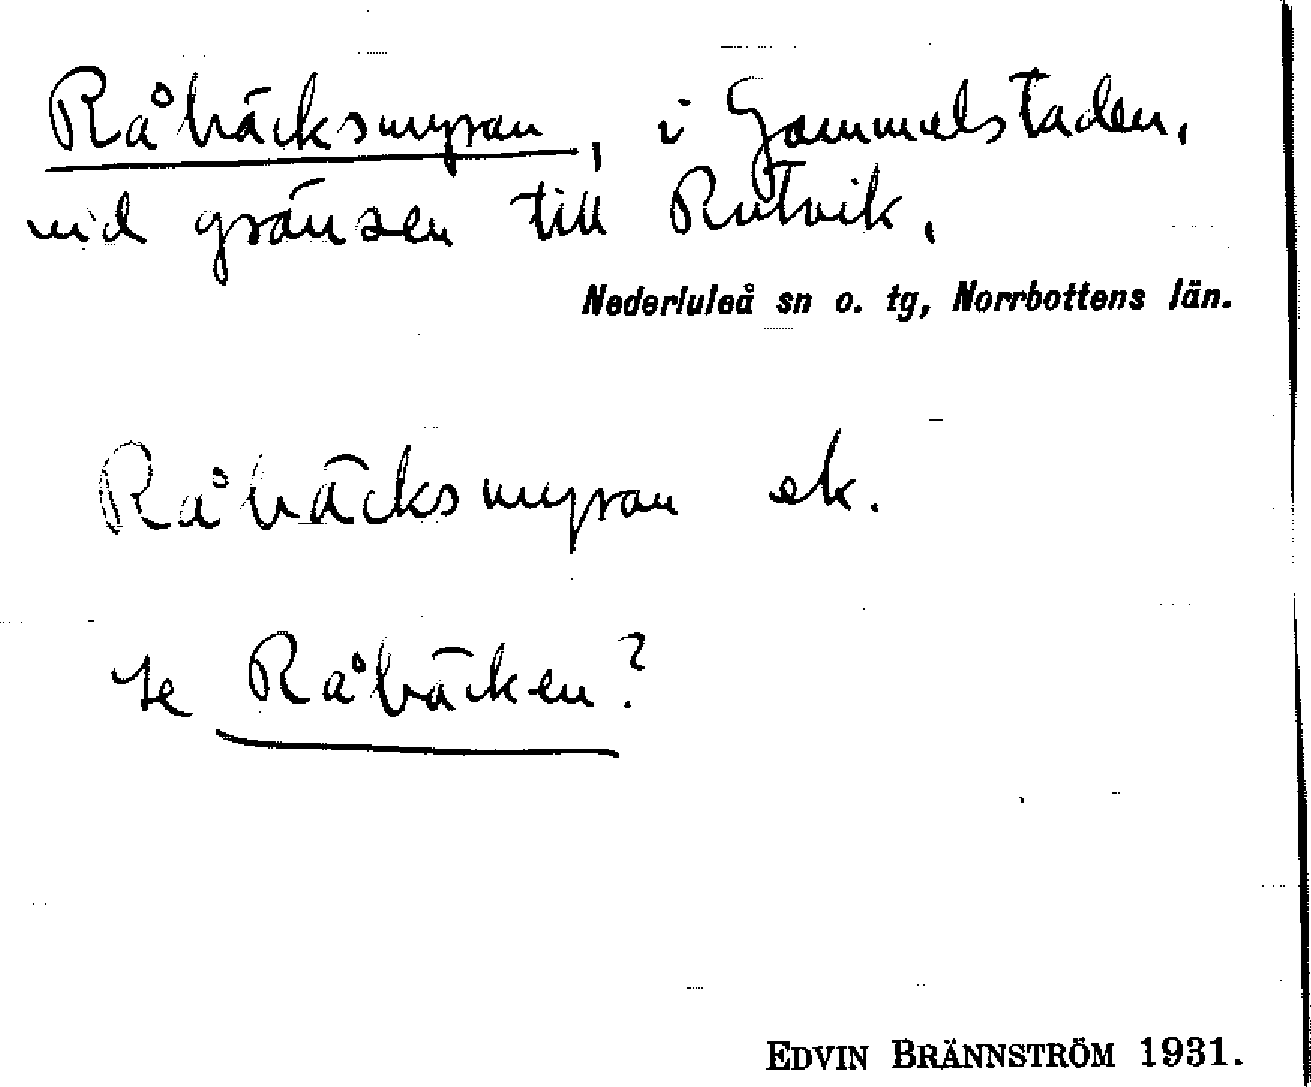 Råbäcksmyran, i Gammelstaden,
vid gränsen till Rutvik.
Nederluleå sn o. tg, Norrbottens län.
Råbäcksmyran ek.
se Råbäcken?
EDVIN BRÄNNSTRÖM 1931.